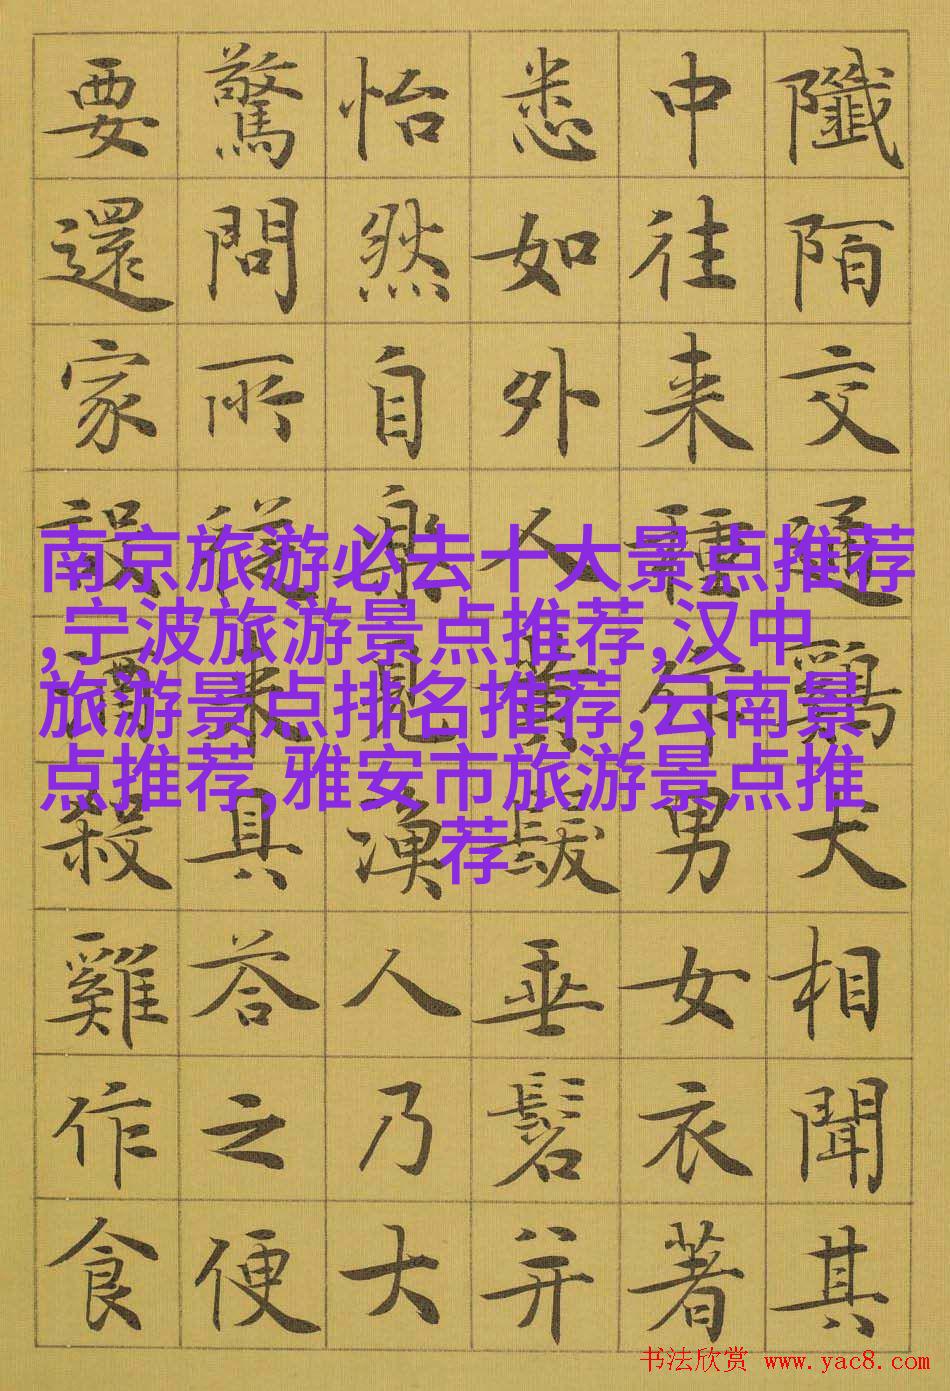 陌交通鷄犬相聞其
中往来種作男女衣著
悉如外人黃髮垂髫并
怡然自樂見漁人乃大
驚問所從来具答之便
要還家設酒殺雞作食
南京旅游必去十大景点推荐
,宁波旅游景点推荐,汉中
旅游景点排名推荐,云南景
点推荐,雅安市旅游景点推
荐
书法欣赏 www.yac8.com